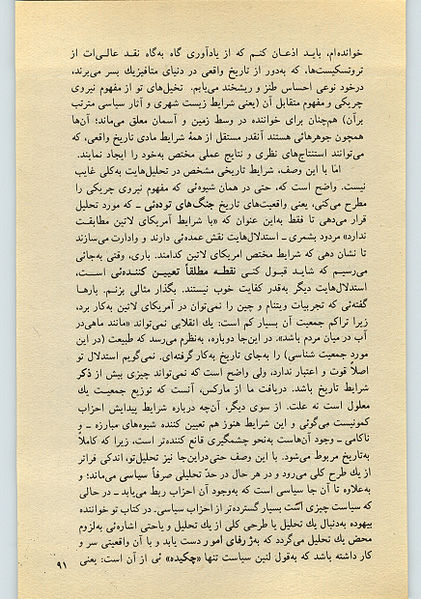 خوانده‌ام، باید اذعان کنم که از یادآوری گاه به‌گاه نقد عالی‌ات از
تروتسکیست‌ها، که به‌دور از تاریخ واقعی در دنیای متافیزیك بسر می‌برند،
درخود نوعی احساس طنز و ریشخند می‌یابم. تخیل‌های تو از مفهوم نیروی
چریکی و مفهوم متقابل آن (یعنی شرایط زیست شهری و آثار سیاسی مترتب
برآن) هم‌چنان برای خواننده در وسط زمین و آسمان معلق می‌ماند؛ آن‌ها
همچون جوهرهائی هستند آنقدر مستقل از همهٔ شرایط مادی تاریخ واقعی، که
می‌توانند استنتاج‌های نظری و نتایج عملی مختص به‌خود را ایجاد نمایند.
امّا با این وصف، شرایط تاریخی مشخص در تحلیل‌هایت به‌کلی غایب
نیست. واضح است که، حتی در همان شیوه‌ئی که مفهوم نیروی چریکی را
مطرح می‌کنی، یعنی واقعیت‌های تاریخ جنگ‌های توده‌ئی ـ که مورد تحلیل
قرار می‌دهی تا فقط به‌این عنوان که «با شرایط آمریکای لاتین مطابقت
ندارد» مردود بشمری ـ استدلال‌هایت نقش عمده‌ئی دارند و وادارت می‌سازند
تا نشان دهی که شرایط مختص امریکای لاتین کدامند. باری، وقتی به‌جائی
می‌رسیم که شاید قبول کنی نقطه مطلقاً تعیین کننده‌ئی است،
استدلال‌هایت دیگر به‌قدر کفایت خوب نیستند. بگذار مثالی بزنم. بارها
گفته‌ئی که تجربیات ویتنام و چین را نمی‌توان در آمریکای لاتین به‌کار برد،
زیرا تراکم جمعیت آن بسیار کم است: یك انقلابی نمی‌تواند «مانند ماهی‌در
آب در میان مردم باشد». در این‌جا دوباره، به‌نظرم می‌رسد که طبیعت (در این
مورد جمعیت شناسی) را به‌جای تاریخ به‌کار گرفته‌ای. نمی‌گویم استدلال تو
اصلاً قوت و اعتبار ندارد، ولی واضح است که نمی‌تواند چیزی بیش از ذکر
شرایط تاریخ باشد. دریافت ما از مارکس، آنست که توزیع جمعیت یك
معلول است نه علت. از سوی دیگر، آن‌چه درباره شرایط پیدایش احزاب
کمونیست می‌گوئی و این شرایط هنوز هم تعیین کننده شیوه‌های مبارزه ـ و
ناکامی ـ وجود آن‌هاست به‌نحو چشمگیری قانع کننده‌تر است، زیرا که کاملاً
به‌تاریخ مربوط می‌شود. با این وصف حتی‌دراین‌جا نیز تحلیل‌تو، اندکی فراتر
از یك طرح کلی می‌رود و در هر حال در حدّ تحلیلی صرفاً سیاسی می‌ماند؛ و
به‌علاوه تا آن جا سیاسی است که به‌وجود آن احزاب ربط می‌یابد ـ در حالی که
سیاست چیزی است بسیار گسترده‌تر از احزاب سیاسی. در کتاب تو خواننده
بیهوده به‌دنبال یك تحلیل یا طرحی کلی از یك تحلیل و یاحتی اشاره‌ئی به‌لزوم
محض یك تحلیل می‌گردد که به‌ژرفای امور دست یابد و با آن واقعیتی سر و
کار داشته باشد که به‌قول لنین سیاست تنها «چکیده» ئی از آن است: یعنی
۹۱